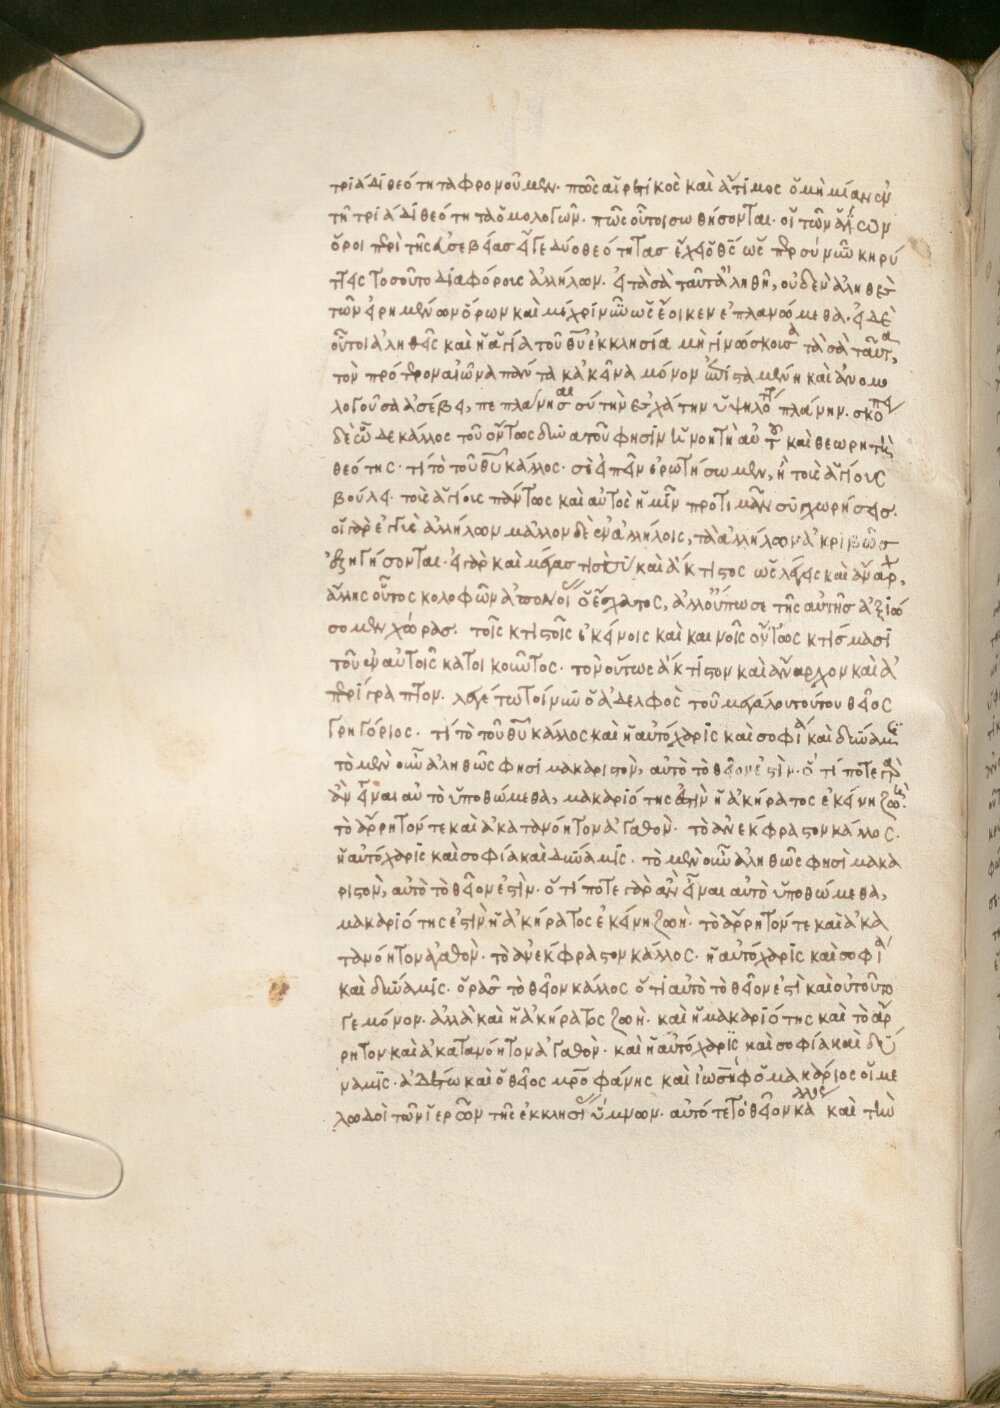 τριάδι θεότητα φρονοῦμεν· πῶς αἱρετικὸς καὶ ἄτιμος ὁ μὴ μίαν ἐν
τῇ τριάδι θεότητα ὁμολογῶν· πῶς οὗτοι σωθήσονται· οἱ τῶν ἁγίων
ὅροι περὶ τῆς ἀσεβείας εἴγε δύο θεότητας ἔχει ὁ θεὸς ὡς περ σὺ νῦν κηρύ
τεις τοσοῦτο διαφόροις ἀλλήλων· εἰ τὰ σὰ ταῦτα ἀληθῆ, οὐδὲν ἀληθὲς
τῶν εἰρημένων ὅρων καὶ μέχρι νῦν ὡς ἔοικεν ἐπλανώμεθα· εἰ δὲ
οὗτοι ἀληθεῖς καὶ ἡ ἁγία τοῦ θυ ἐκκλησία μὴ γινώσκουσα τὰ σὰ ταῦτα,
τὸν πρότερον αἰῶνα πάντα κἀκεῖνα μόνον ἐπισταμένη καὶ ἀνομο
λογοῦσα ἀσέβει, πεπλάνησαι σὺ τὴν ἐσχάτην ὑψηλοτέρ πλάνην· σκόπει
δὲ ὧδε κάλλος τοῦ ὄντως δυνατοῦ φησὶν νοητὴ αὐτοῦ καὶ θεωρητὴ
θεότης· τί τὸ τοῦ θυ κάλλος· σὲ εἰπεῖν ἐρωτήσωμεν, ἢ τοῖς ἁγίοις
βούλει· τοῖς ἁγίοις πάντως καὶ αὐτὸς ἡμῖν προτιμᾶν συγχωρήσεις·
οἱ γὰρ ἐγγὺς ἀλλήλων μᾶλλον δὲ ἐν ἀλλήλοις, τὰ ἀλλήλων ἀκριβῶς
ἐξηγήσονται· εἰ γὰρ καὶ μέγας τις εἶ σὺ καὶ ἄκτιστος ὡς λέγεις καὶ ἄναρχ,
ἄλλης οὗτος κολοφῶν ἀπονοίας ὁ ἔσχατος, ἀλλ' οὔπω σε τῆς αὐτῆς ἀξιώ
σομεν χώρας· τοῖς κτιστοῖς ἐκείνοις καὶ καινοῖς ὄντως κτίσμασι
τοῦ ἐν αὐτοῖς κατοικοῦντος· τὸν οὕτως ἄκτιστον καὶ ἄναρχον καὶ ἀ
περίγραπτον· λέγέτω τοίνυν ὁ ἀδελφὸς τοῦ μεγάλου τούτου θεῖος
Γρηγόριος· τί τὸ τοῦ θυ κάλλος καὶ ἡ αὐτόχαρις καὶ σοφία καὶ δύναμις
τὸ μὲν οὖν ἀληθῶς φησὶ μακαριστὸν, αὐτὸ τὸ θεῖον ἐστὶν· ὅ τί ποτε γὰρ
ἂν εἶναι αὐτὸ ὑποθώμεθα, μακαριότης ἐστὶν ἡ ἀκήρατος ἐκείνη ζωὴ·
τὸ ἄρρητόν τε καὶ ἀκατανόητον ἀγαθὸν· τὸ ἀνεκφραστον κάλλος·
ἡ αὐτόχαρις καὶ σοφία καὶ δύναμις· τὸ μὲν οὖν ἀληθῶς φησὶ μακα
ριστὸν, αὐτὸ τὸ θεῖον ἐστὶν· ὅ τί ποτε γὰρ ἂν εἶναι αὐτὸ ὑποθώμεθα,
μακαριότης ἐστὶν ἡ ἀκήρατος ἐκείνη ζωὴ· τὸ ἄρρητόν τε καὶ ἀκα
τανόητον ἀγαθὸν· τὸ ἀνεκφραστον κάλλος· ἡ αὐτόχαρις καὶ σοφία
καὶ δύναμις· ὁρᾷς τὸ θεῖον κάλλος ὅτι αὐτὸ τὸ θεῖον ἐστὶ καὶ οὐ τοῦτο
γε μόνον· ἀλλὰ καὶ ἡ ἀκήρατος ζωὴ· καὶ ἡ μακαριότης καὶ τὸ ἄρ
ρητον καὶ ἀκατανόητον ἀγαθὸν· καὶ ἡ αὐτόχαρις καὶ σοφία καὶ δύ
ναμις· ᾀδέτω καὶ ὁ θεῖος μητροφάνης καὶ ἰωσὴφ ὁ μακάριος οἱ με
λωδοὶ τῶν ἱερῶν τῆς ἐκκλησίας ὕμνων· αὐτό τε τὸ θεῖον κάλλος καὶ τὴν